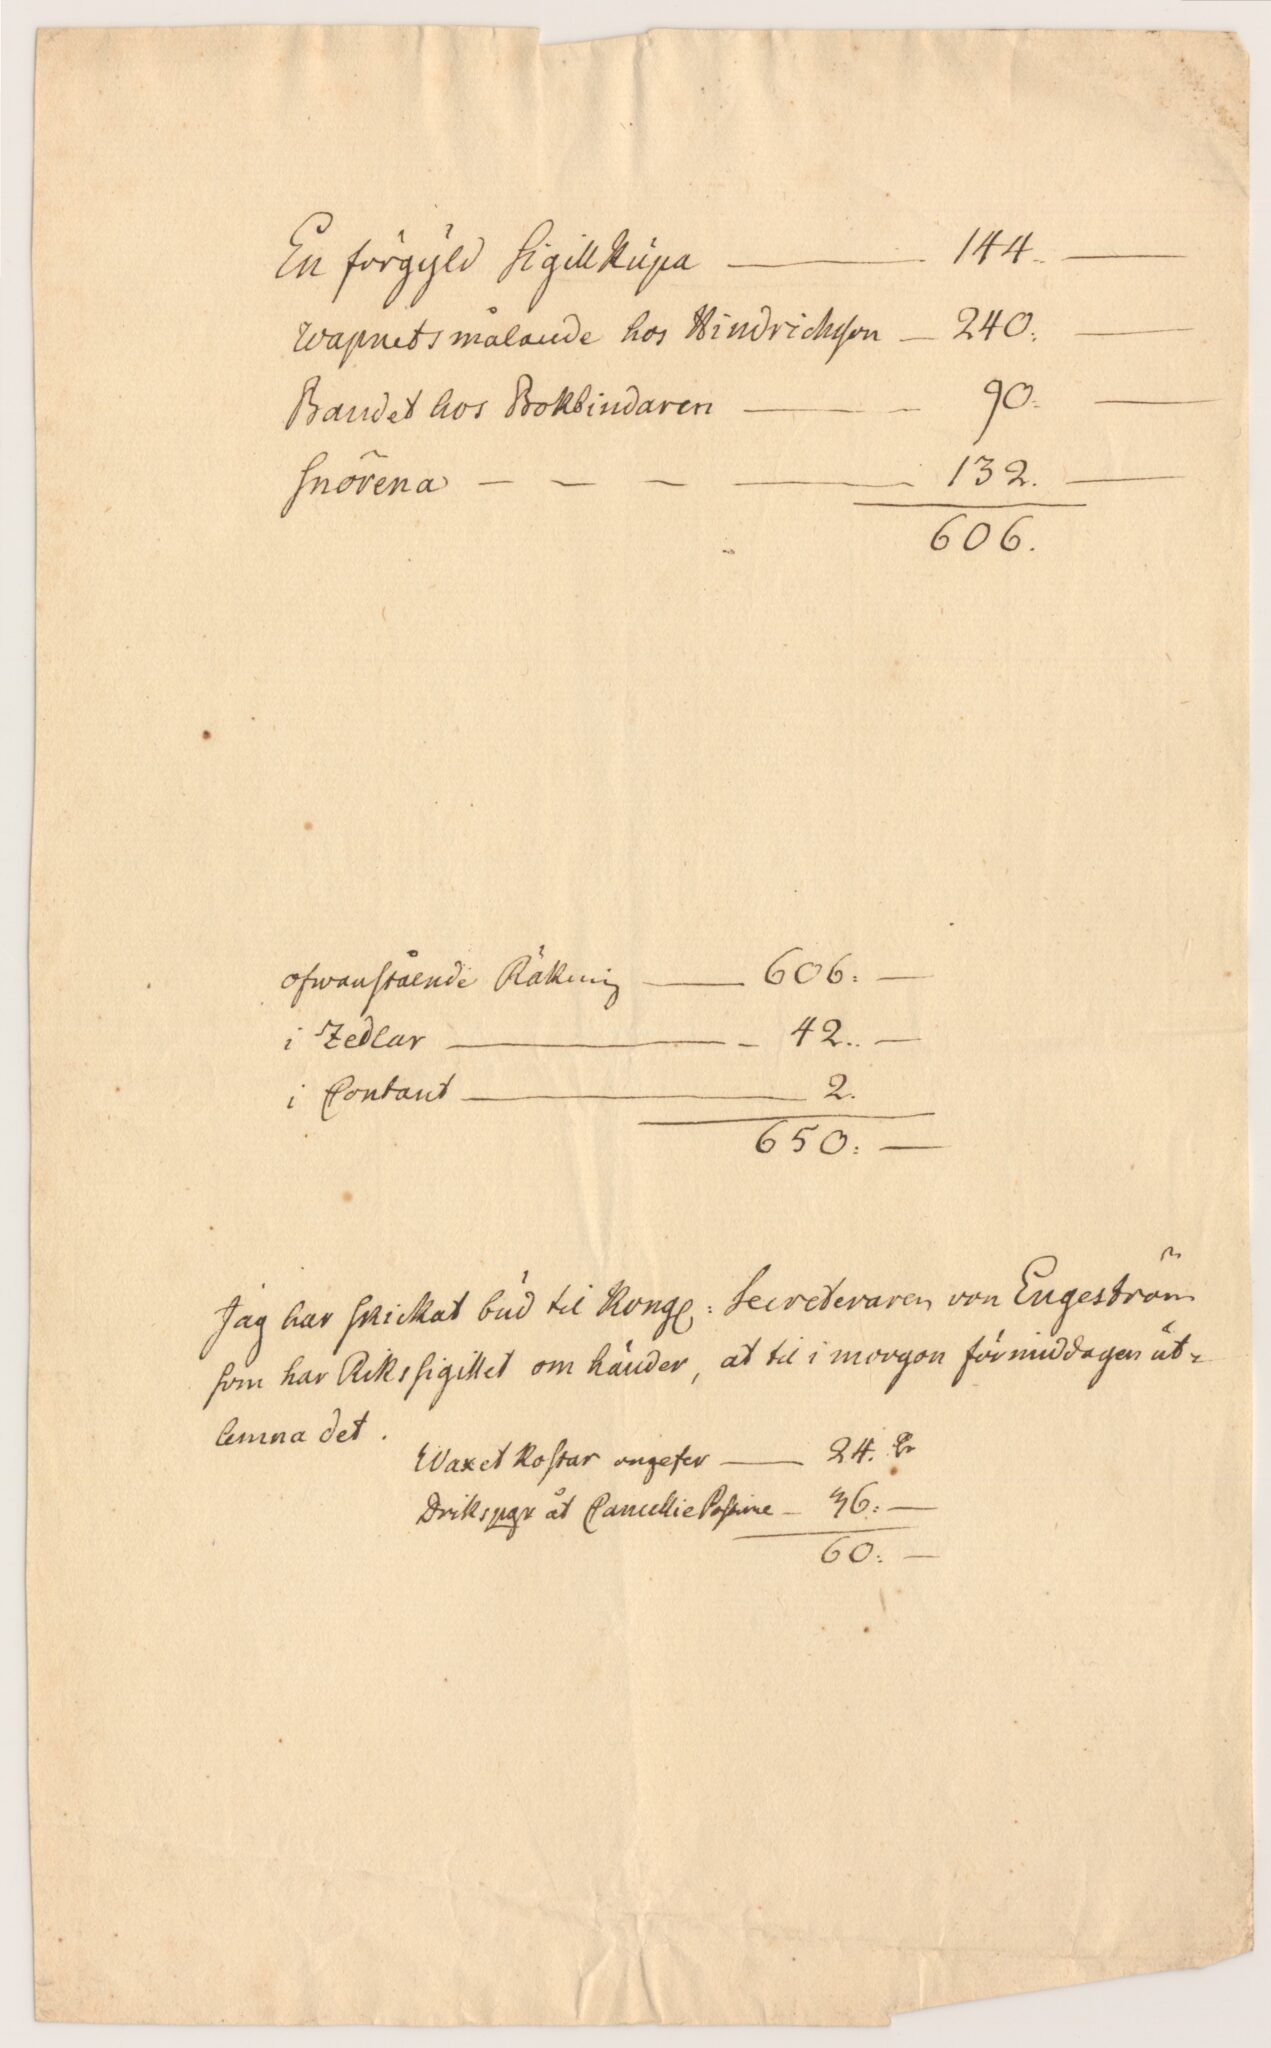 En förgyld Sigill Kupa — 144.. —
Wapnets målande hos Hindrichson — 240: —
Bandet hos Bokbindaren — 90: —
Snörena — — — — 132. —
606.
ofwanstående Räkning — 606: —
i Zedlar — 42.. —
i Contant — 2.
650: —
Jag har skickat bud til Kongl: Secreteraren von Engeström
som har Riks sigillet om händer, at til i morgon förmiddagen ut-
lemna det.
Waxet kostar ungefer — 24.
Drikspgr åt Cancellie — 36: —
60: —